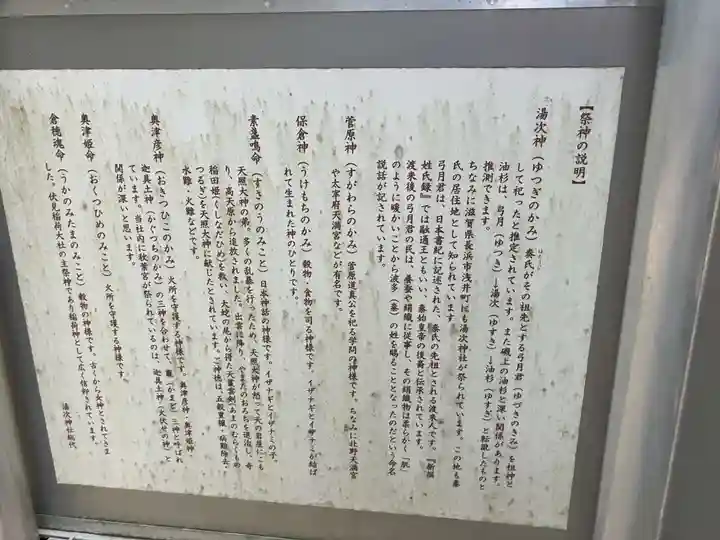 【祭神の説明】
湯次神（ゆつぎのかみ）秦氏がその祖先とする弓月君（ゆづきのきみ）を祖神と
して祀ったと推定されています。また磯上の油杉と深い関係があります。
油杉は、弓月（ゆづき）→湯次（ゆすき）→油杉（ゆすぎ）と転訛したものと
推測できます。
ちなみに滋賀県長浜市浅井町にも湯次神社が祭られています。この地も秦
氏の居住地として知られています
弓月君は、日本書紀に記述された、秦氏の先祖とされる渡来人です。『新撰
姓氏録』では融通王ともいい、秦始皇帝の後裔と伝承されています。
渡来後の弓月君の民は、養蚕や絹織に従事し、その絹織物は柔らかく「肌」
のように暖かいことから波多（秦）の姓を賜ることとなったのだという命名
説話が記されています。
菅原神（すがわらのかみ）菅原道真公を祀る学問の神様です。ちなみに北野天満宮
や太宰府天満宮などが有名です。
保倉神（うけもちのかみ）穀物・食物を司る神様です。イザナギとイザナミが結ば
れて生まれた神のひとりです。
素盞鳴命（すさのうのみこと）日本神話の神様です。イザナギとイザナミの子。
天照大神の弟。多くの乱暴を行ったため、天照大神が怒って天の岩屋にこも
り、高天原から追放されました。出雲に降り、やまたのおろちを退治し、奇
稲田姫（くしなだひめ）を救い、大蛇の尾から得た天叢雲剣（あまのむらくもの
つるぎ）を天照大神に献じたとされています。ご神徳は、五穀豊穣・病難除去・
水難・火難などです。
奥津彦神（おきつひこのかみ）火所を守護する神様です。奥津彦神・奥津姫神・
迦具土神（かぐつちのかみ）の三神を合わせて、竈（かまど）三神と呼ばれ
ています。当社内に秋葉宮が祭られているのは、迦具土神（火伏せの神）と
関係が深いと思います。
奥津姫命（おくつひめのみこと）火所を守護する神様です。
倉穂魂命（うかのみたまのみこと）穀物の神様です。古くから女神とされてきま
した。伏見稲荷大社の主祭神であり稲荷神として広く信仰されています。
湯次神社総代